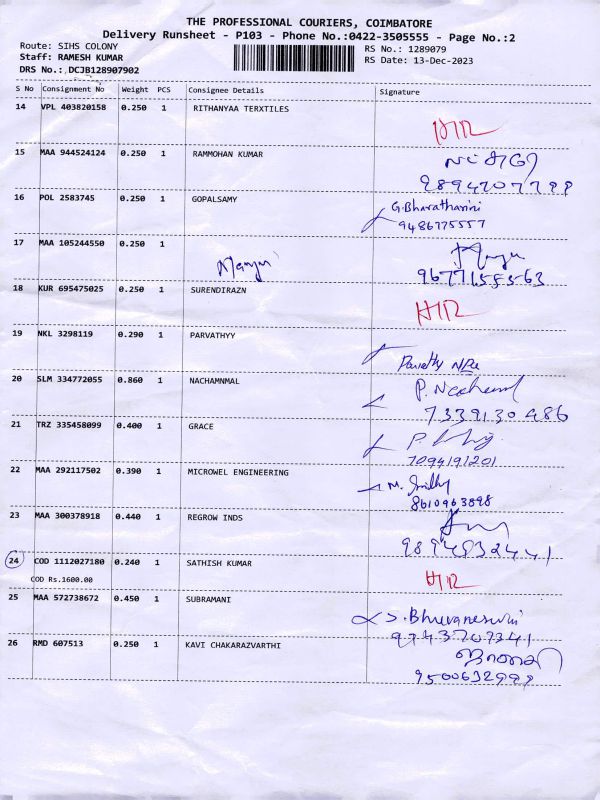 THE PROFESSIONAL COURIERS, COIMBATORE
Delivery Runsheet - P103 - Phone No.:0422-3505555 - Page No.:2
Route: SIHS COLONY
RS No.: 1289079
Staff: RAMESH KUMAR
RS Date: 13-Dec-2023
DRS No.: DCJB128907902
S No Consignment No Weight PCS Consignee Details Signature
14 VPL 403820158 0.250 1 RITHANYAA TERXTILES
15 MAA 944524124 0.250 1 RAMMOHAN KUMAR
16 POL 2583745 0.250 1 GOPALSAMY G.Bharatharini
9486775557
17 MAA 105244550 0.250 1
Manju
9677155563
18 KUR 695475025 0.250 1 SURENDIRAZN
19 NKL 3298119 0.290 1 PARVATHYY
20 SLM 334772055 0.860 1 NACHAMNMAL
7339130486
21 TRZ 335458099 0.400 1 GRACE
7094191201
22 MAA 292117502 0.390 1 MICROWEL ENGINEERING
8610963898
23 MAA 300378918 0.440 1 REGROW INDS
9894932441
24 COD 1112027180 0.240 1 SATHISH KUMAR
COD Rs.1600.00
25 MAA 572738672 0.450 1 SUBRAMANI S. Bhuvaneswari
26 RMD 607513 0.250 1 KAVI CHAKARAZVARTHI